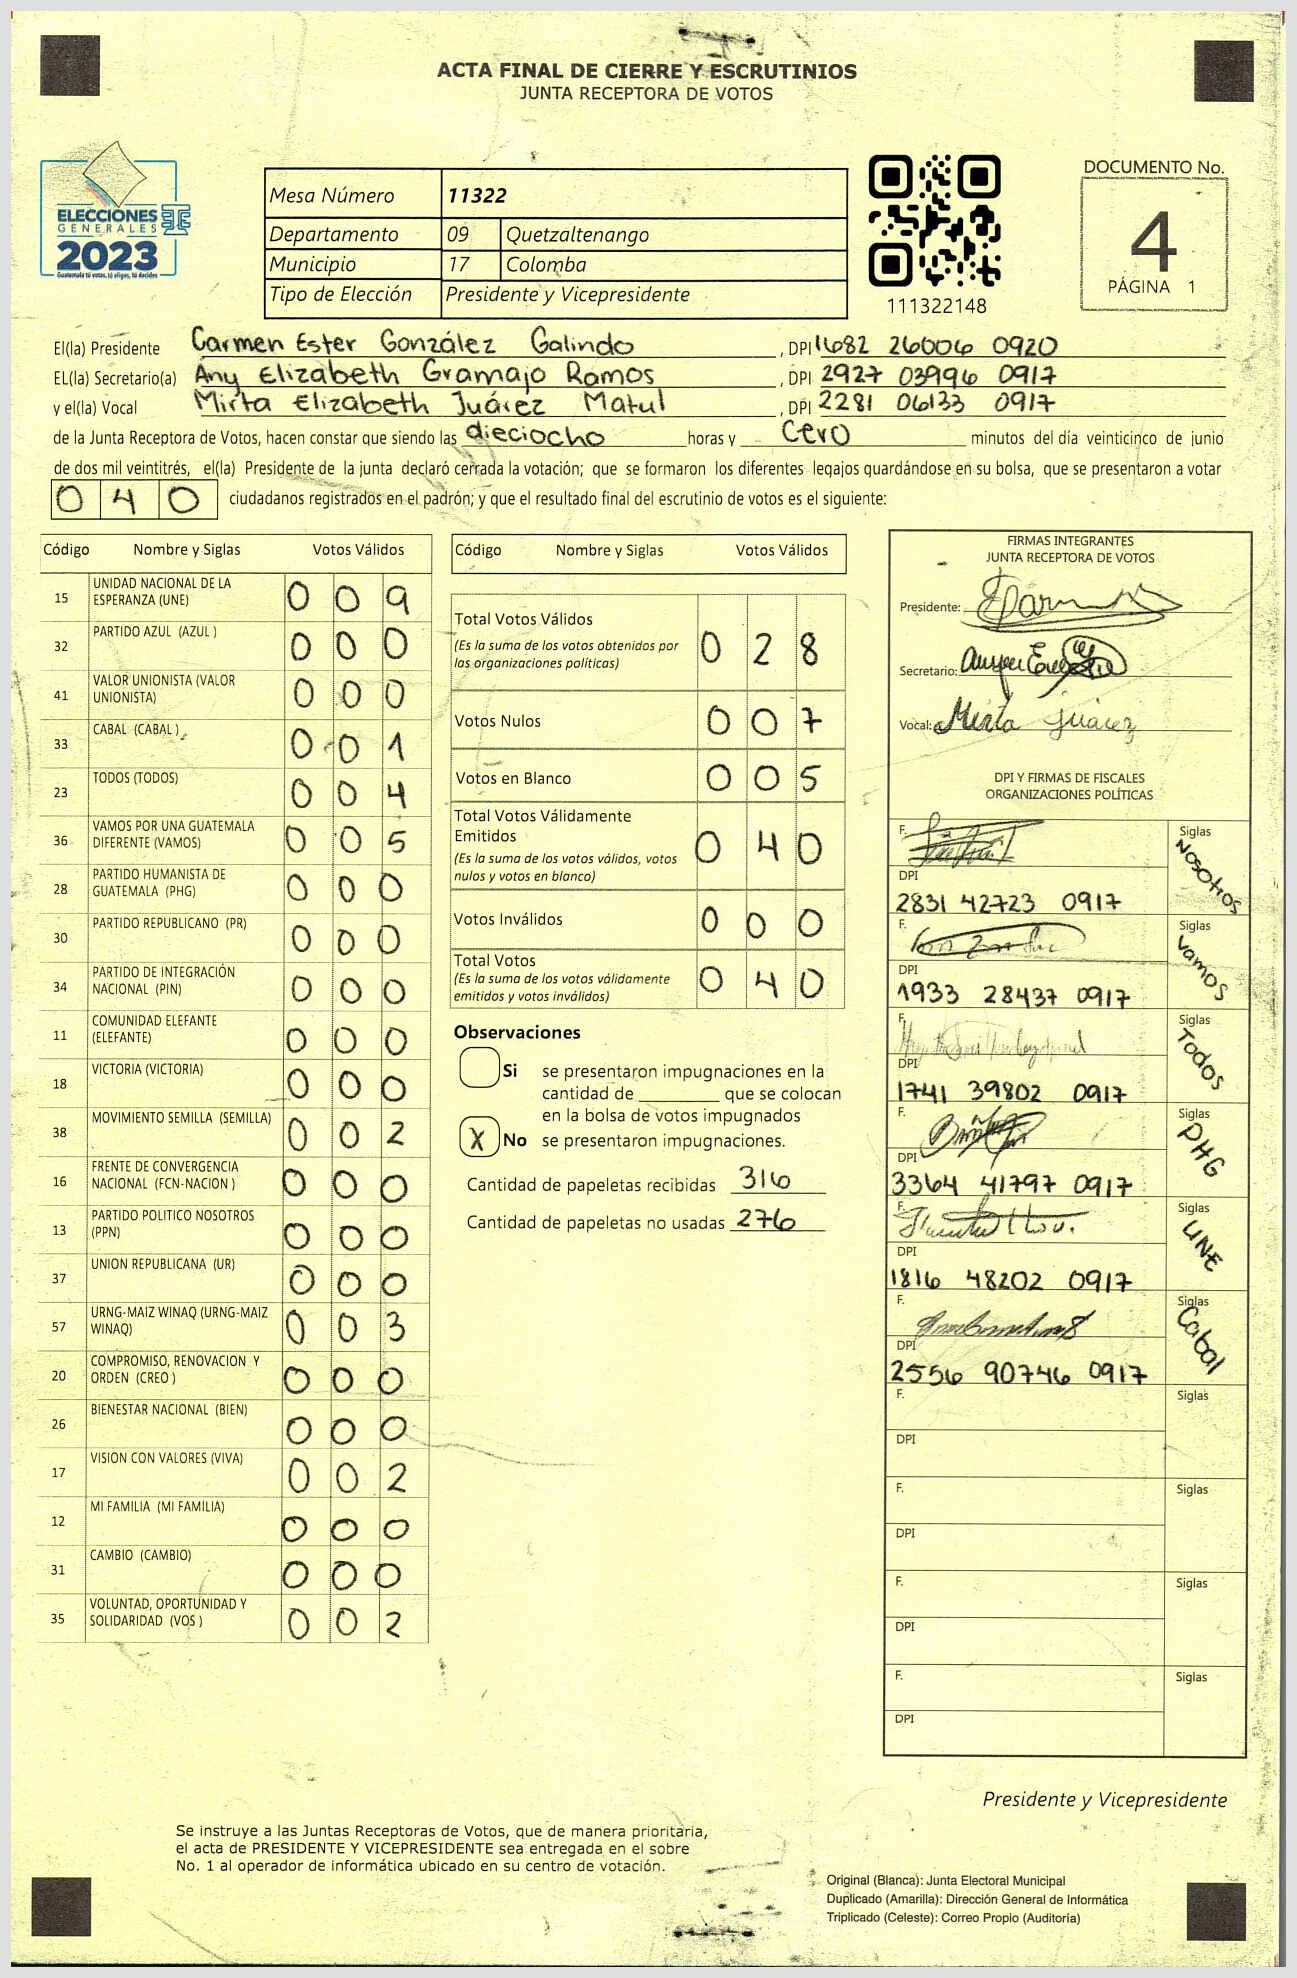 ACTA FINAL DE CIERRE Y ESCRUTINIOS
JUNTA RECEPTORA DE VOTOS
ELECCIONES
GENERALES
2023
Guatemala tú votas, tú eliges, tú decides
Mesa Número 11322
Departamento 09 Quetzaltenango
Municipio 17 Colomba
Tipo de Elección Presidente y Vicepresidente
111322148
DOCUMENTO No.
4
PÁGINA 1
El(la) Presidente Carmen Ester González Galindo , DPI 1682 26006 0920
EL(la) Secretario(a) Any Elizabeth Gramajo Ramos , DPI 2927 03996 0917
y el(la) Vocal Mirta Elizabeth Juárez Matul , DPI 2281 06133 0917
de la Junta Receptora de Votos, hacen constar que siendo las dieciocho horas y cero minutos del día veinticinco de junio
de dos mil veintitrés, el(la) Presidente de la junta declaró cerrada la votación; que se formaron los diferentes legajos guardándose en su bolsa, que se presentaron a votar
0 4 0 ciudadanos registrados en el padrón; y que el resultado final del escrutinio de votos es el siguiente:
Código Nombre y Siglas Votos Válidos
15 UNIDAD NACIONAL DE LA ESPERANZA (UNE) 0 0 9
32 PARTIDO AZUL (AZUL ) 0 0 0
41 VALOR UNIONISTA (VALOR UNIONISTA) 0 0 0
33 CABAL (CABAL ) 0 0 1
23 TODOS (TODOS) 0 0 4
36 VAMOS POR UNA GUATEMALA DIFERENTE (VAMOS) 0 0 5
28 PARTIDO HUMANISTA DE GUATEMALA (PHG) 0 0 0
30 PARTIDO REPUBLICANO (PR) 0 0 0
34 PARTIDO DE INTEGRACIÓN NACIONAL (PIN) 0 0 0
11 COMUNIDAD ELEFANTE (ELEFANTE) 0 0 0
18 VICTORIA (VICTORIA) 0 0 0
38 MOVIMIENTO SEMILLA (SEMILLA) 0 0 2
16 FRENTE DE CONVERGENCIA NACIONAL (FCN-NACION ) 0 0 0
13 PARTIDO POLITICO NOSOTROS (PPN) 0 0 0
37 UNION REPUBLICANA (UR) 0 0 0
57 URNG-MAIZ WINAQ (URNG-MAIZ WINAQ) 0 0 3
20 COMPROMISO, RENOVACION Y ORDEN (CREO ) 0 0 0
26 BIENESTAR NACIONAL (BIEN) 0 0 0
17 VISION CON VALORES (VIVA) 0 0 2
12 MI FAMILIA (MI FAMILIA) 0 0 0
31 CAMBIO (CAMBIO) 0 0 0
35 VOLUNTAD, OPORTUNIDAD Y SOLIDARIDAD (VOS ) 0 0 2
Código Nombre y Siglas Votos Válidos
Total Votos Válidos 0 2 8
(Es la suma de los votos obtenidos por
las organizaciones políticas)
Votos Nulos 0 0 7
Votos en Blanco 0 0 5
Total Votos Válidamente
Emitidos 0 4 0
(Es la suma de los votos válidos, votos
nulos y votos en blanco)
Votos Inválidos 0 0 0
Total Votos 0 4 0
(Es la suma de los votos válidamente
emitidos y votos inválidos)
Observaciones
Si se presentaron impugnaciones en la
cantidad de ________ que se colocan
en la bolsa de votos impugnados
X No se presentaron impugnaciones.
Cantidad de papeletas recibidas 316
Cantidad de papeletas no usadas 276
FIRMAS INTEGRANTES
JUNTA RECEPTORA DE VOTOS
Presidente:
Secretario:
Vocal: Mirta Juárez
DPI Y FIRMAS DE FISCALES
ORGANIZACIONES POLÍTICAS
F. Siglas Nosotros
DPI
2831 42723 0917
F. Siglas Vamos
DPI
1933 28437 0917
F. Siglas Todos
DPI
1741 39802 0917
F. Siglas PHG
DPI
3364 41797 0917
F. Siglas UNE
DPI
1816 48202 0917
F. Siglas Cabal
DPI
2556 90746 0917
F. Siglas
DPI
F. Siglas
DPI
F. Siglas
DPI
F. Siglas
DPI
Presidente y Vicepresidente
Se instruye a las Juntas Receptoras de Votos, que de manera prioritaria,
el acta de PRESIDENTE Y VICEPRESIDENTE sea entregada en el sobre
No. 1 al operador de informática ubicado en su centro de votación.
Original (Blanca): Junta Electoral Municipal
Duplicado (Amarilla): Dirección General de Informática
Triplicado (Celeste): Correo Propio (Auditoría)